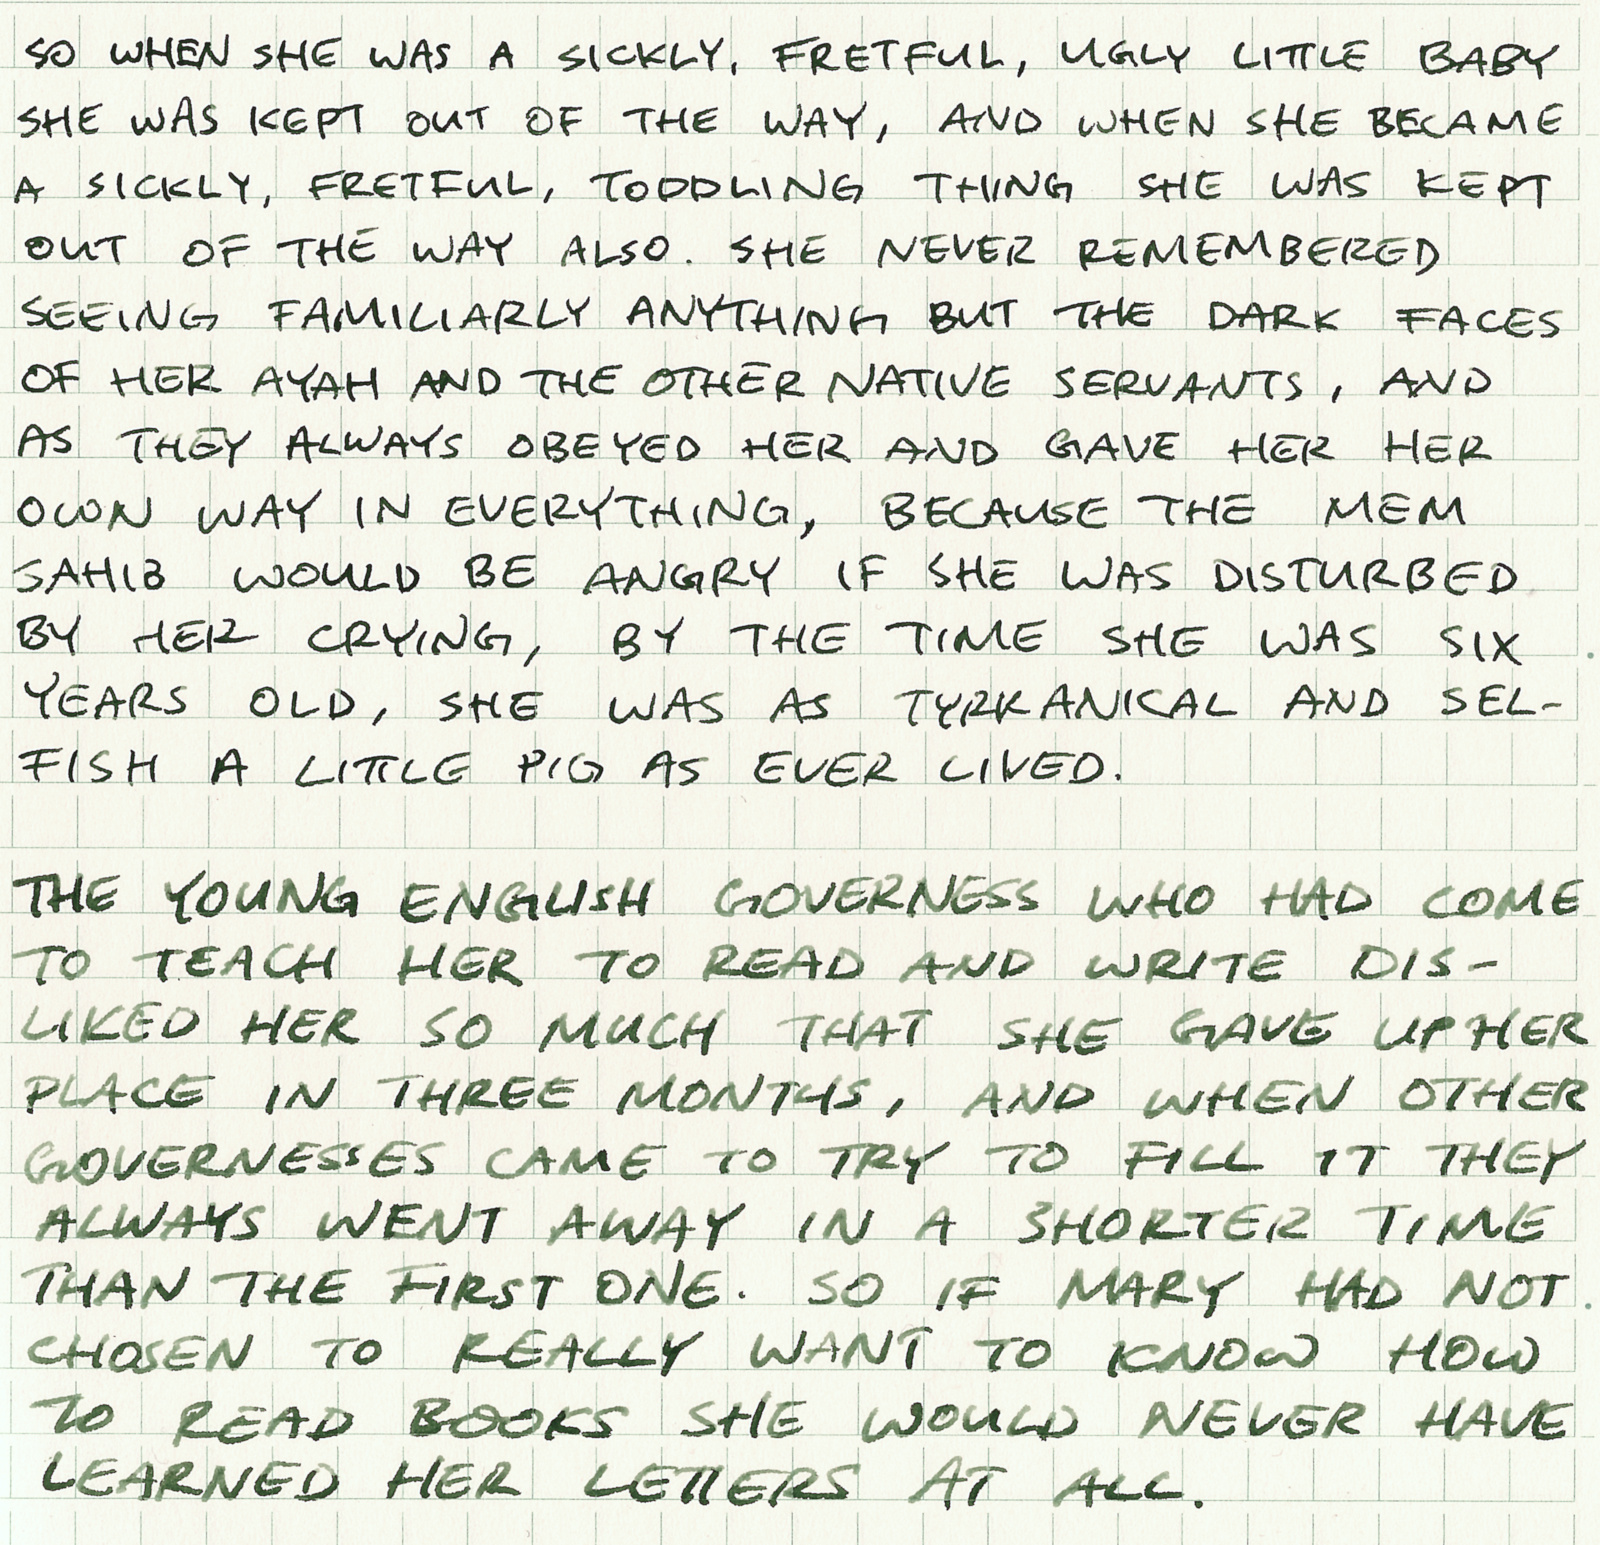 SO WHEN SHE WAS A SICKLY, FRETFUL, UGLY LITTLE BABY
SHE WAS KEPT OUT OF THE WAY, AND WHEN SHE BECAME
A SICKLY, FRETFUL, TODDLING THING SHE WAS KEPT
OUT OF THE WAY ALSO. SHE NEVER REMEMBERED
SEEING FAMILIARLY ANYTHING BUT THE DARK FACES
OF HER AYAH AND THE OTHER NATIVE SERVANTS, AND
AS THEY ALWAYS OBEYED HER AND GAVE HER HER
OWN WAY IN EVERYTHING, BECAUSE THE MEM
SAHIB WOULD BE ANGRY IF SHE WAS DISTURBED
BY HER CRYING, BY THE TIME SHE WAS SIX
YEARS OLD, SHE WAS AS TYRRANICAL AND SEL-
FISH A LITTLE PIG AS EVER LIVED.
THE YOUNG ENGLISH GOVERNESS WHO HAD COME
TO TEACH HER TO READ AND WRITE DIS-
LIKED HER SO MUCH THAT SHE GAVE UP HER
PLACE IN THREE MONTHS, AND WHEN OTHER
GOVERNESSES CAME TO TRY TO FILL IT THEY
ALWAYS WENT AWAY IN A SHORTER TIME
THAN THE FIRST ONE. SO IF MARY HAD NOT
CHOSEN TO REALLY WANT TO KNOW HOW
TO READ BOOKS SHE WOULD NEVER HAVE
LEARNED HER LETTERS AT ALL.